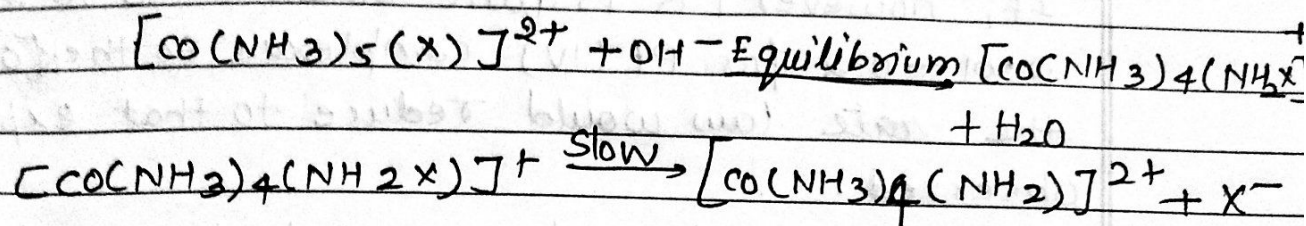 [CO(NH3)5(X)]2+ + OH- Equilibrium [CO(NH3)4(NH2X]+
+ H2O
[CO(NH3)4(NH2X)]+ Slow [CO(NH3)4(NH2)]2+ + X-